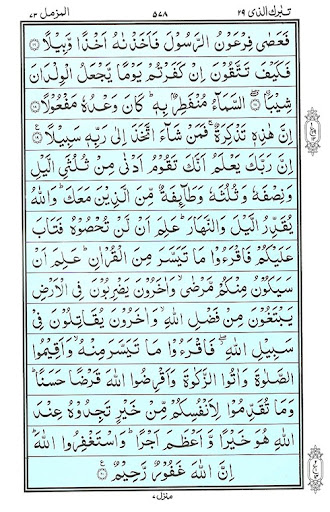 تبٰرك الذی ۲۹ ۵۷۸ المزمل ۷۳
فَعَصٰى فِرْعَوْنُ الرَّسُوْلَ فَاَخَذْنٰهُ اَخْذًا وَّبِيْلًا ۝۱۶
فَكَيْفَ تَتَّقُوْنَ اِنْ كَفَرْتُمْ يَوْمًا يَّجْعَلُ الْوِلْدَانَ
شِيْبًا ۝۱۷ السَّمَآءُ مُنْفَطِرٌۢ بِهٖ ؕ كَانَ وَعْدُهٗ مَفْعُوْلًا ۝۱۸
اِنَّ هٰذِهٖ تَذْكِرَةٌ ۚ فَمَنْ شَآءَ اتَّخَذَ اِلٰى رَبِّهٖ سَبِيْلًا ۝۱۹
اِنَّ رَبَّكَ يَعْلَمُ اَنَّكَ تَقُوْمُ اَدْنٰى مِنْ ثُلُثَيِ الَّيْلِ
وَنِصْفَهٗ وَثُلُثَهٗ وَطَآئِفَةٌ مِّنَ الَّذِيْنَ مَعَكَ ؕ وَاللّٰهُ
يُقَدِّرُ الَّيْلَ وَالنَّهَارَ ؕ عَلِمَ اَنْ لَّنْ تُحْصُوْهُ فَتَابَ
عَلَيْكُمْ فَاقْرَءُوْا مَا تَيَسَّرَ مِنَ الْقُرْاٰنِ ؕ عَلِمَ اَنْ
سَيَكُوْنُ مِنْكُمْ مَّرْضٰى ۙ وَاٰخَرُوْنَ يَضْرِبُوْنَ فِى الْاَرْضِ
يَبْتَغُوْنَ مِنْ فَضْلِ اللّٰهِ ۙ وَاٰخَرُوْنَ يُقَاتِلُوْنَ فِىْ
سَبِيْلِ اللّٰهِ ۖ فَاقْرَءُوْا مَا تَيَسَّرَ مِنْهُ ۙ وَاَقِيْمُوا
الصَّلٰوةَ وَاٰتُوا الزَّكٰوةَ وَاَقْرِضُوا اللّٰهَ قَرْضًا حَسَنًا ؕ
وَمَا تُقَدِّمُوْا لِاَنْفُسِكُمْ مِّنْ خَيْرٍ تَجِدُوْهُ عِنْدَ
اللّٰهِ هُوَ خَيْرًا وَّاَعْظَمَ اَجْرًا ؕ وَاسْتَغْفِرُوا اللّٰهَ ؕ
اِنَّ اللّٰهَ غَفُوْرٌ رَّحِيْمٌ ۝۲۰
منزل ۷